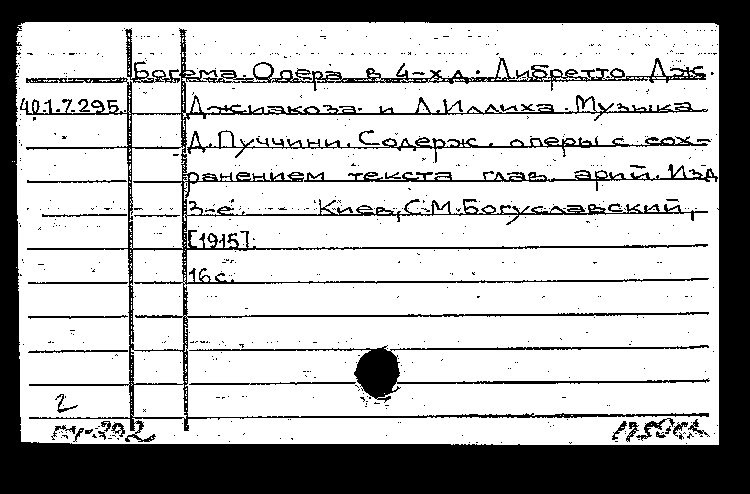 Богема. Опера в 4-х д. Либретто Дж.
40.1.7.295. Джиакоза и Л. Иллиха. Музыка
Д. Пуччини. Содерж. оперы с сох-
ранением текста глав. арий. Изд
3-е. Киев, С.М. Богуславский,
[1915].
16 с.
2